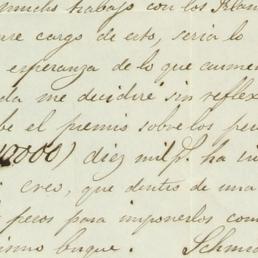 mucho trabajo con los Blan
cargo de esto, seria lo
esperanza de lo que aumen
da me decidiré sin reflex
be el premio sobre los pe
10000) diez mil p.s ha in
creo, que dentro de una
pesos para imponerlos com
ismo buque. Schmi